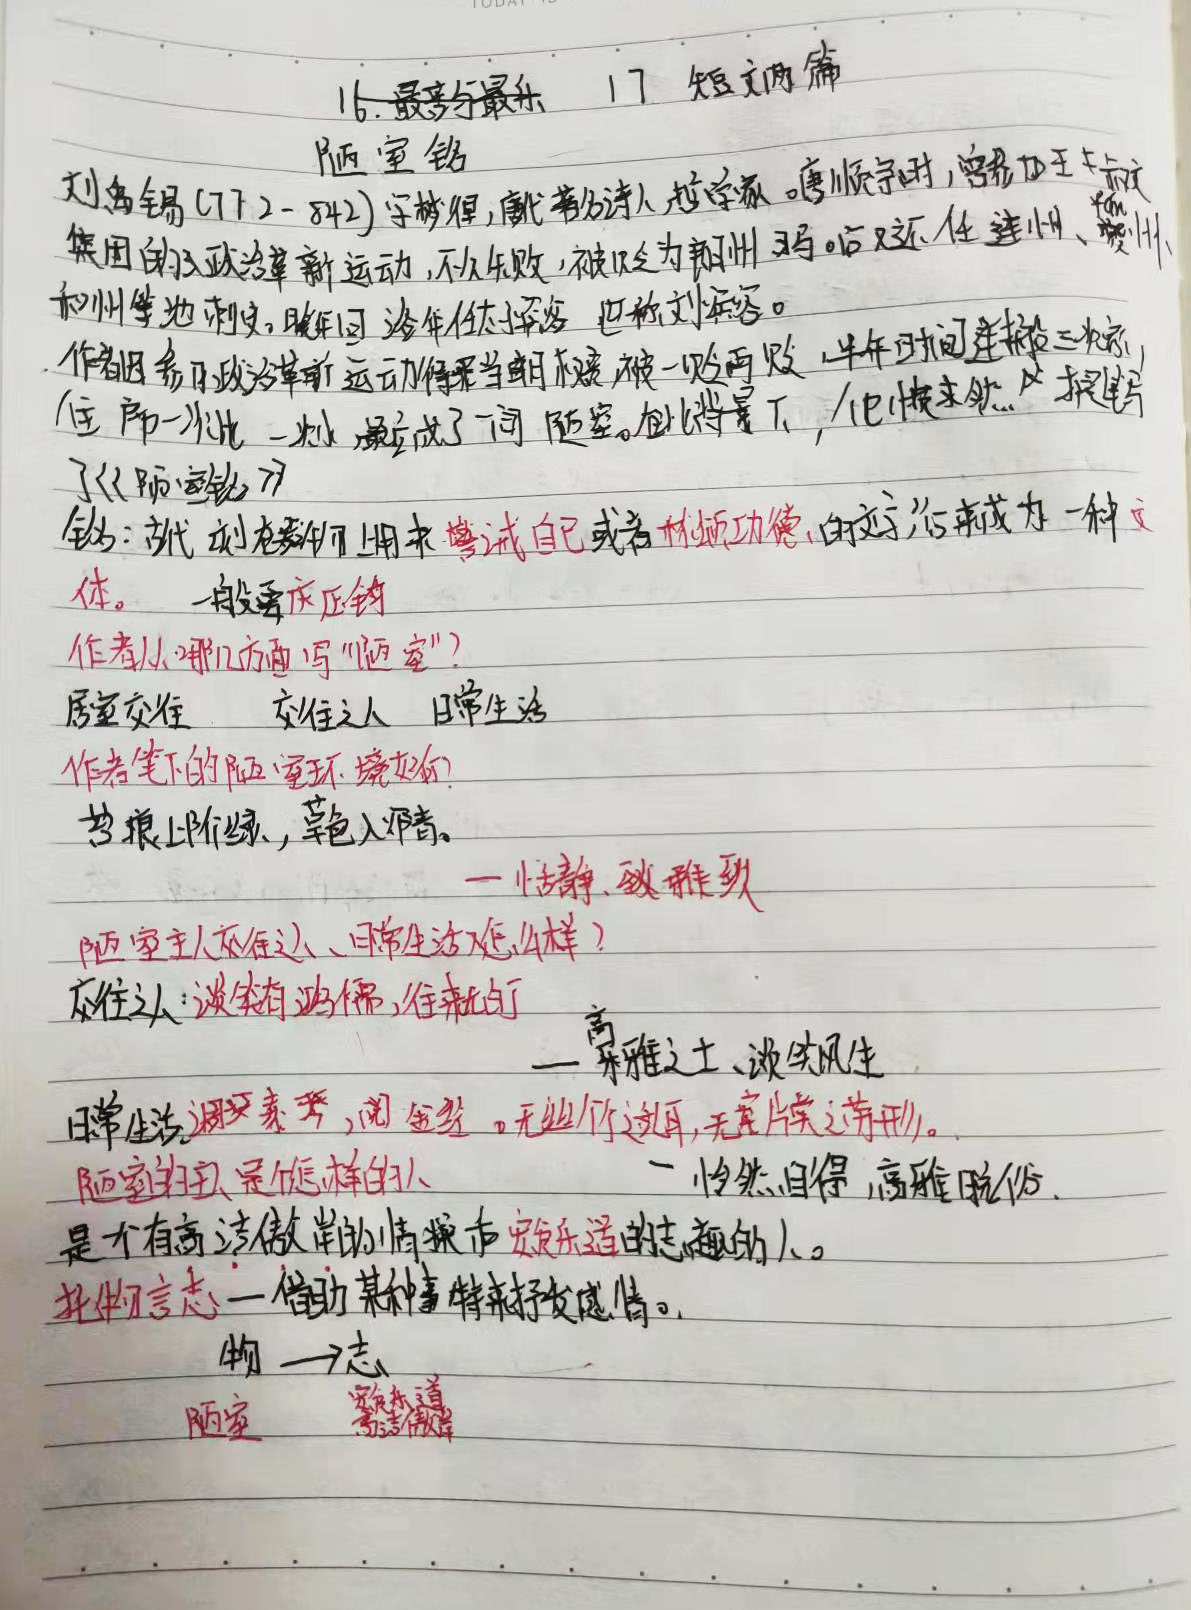 17 短文两篇
陋室铭
刘禹锡(772-842)字梦得,唐代著名诗人,哲学家。唐顺宗时,曾参加王叔文
集团的政治革新运动,不久失败,被贬为朗州司马。后又还任连州、夔州、
和州等地刺史。晚年回洛阳任太子宾客 世称刘宾客。
作者因参加政治革新运动得罪当朝权贵,被一贬再贬,半年时间连搬三次家,
住房一次比一次小,最后成了一间陋室。在此背景下,他愤然提笔写
了《陋室铭》
铭:古代刻在器物上用来警诫自己或者称颂功德的文字,后来成为一种文
体。 一般要求压韵
作者从哪几方面写"陋室"?
居室交往 交往之人 日常生活
作者笔下的陋室环境如何?
苔痕上阶绿,草色入帘青。
一恬静、雅致
陋室主人交往之人、日常生活怎么样?
交往之人:谈笑有鸿儒,往来无白丁
高
一 雅之士、谈笑风生
日常生活:调素琴,阅金经。无丝竹之乱耳,无案牍之劳形。
陋室的主人是个怎样的人 一怡然自得,高雅脱俗.
是个有高洁傲岸的情操和安贫乐道的志趣的人。
托物言志一借助某种事物来抒发感情。
物→志
陋室 安贫乐道
高洁傲岸